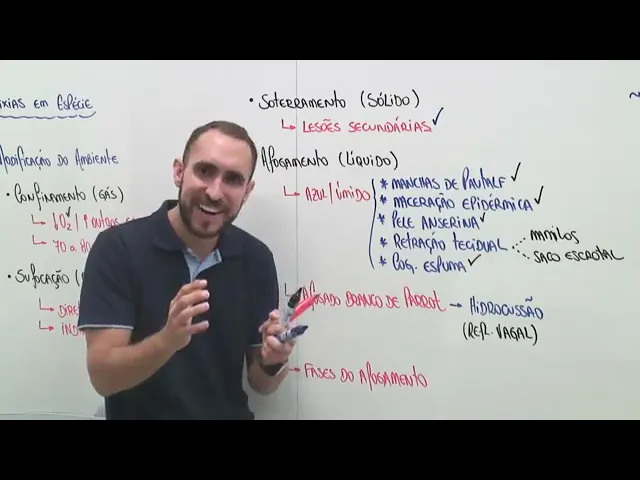 ixias em Espécie
Modificação do Ambiente
• Confinamento (gás)
↳ ↓O2 / ↑ outros
↳ 70 a 80
• Sufocação (
↳ Dire
↳ Ind
• Soterramento (sólido)
↳ Lesões secundárias ✓
Afogamento (líquido)
↳ Azul / úmido
* Manchas de Paltalf ✓
* Maceração epidérmica ✓
* Pele anserina ✓
* Retração tecidual
mamilos
saco escrotal
* Cog. espuma ✓
↳ Afogado branco de Parrot → Hidrocussão
(Refl. vagal)
↳ Fases do afogamento